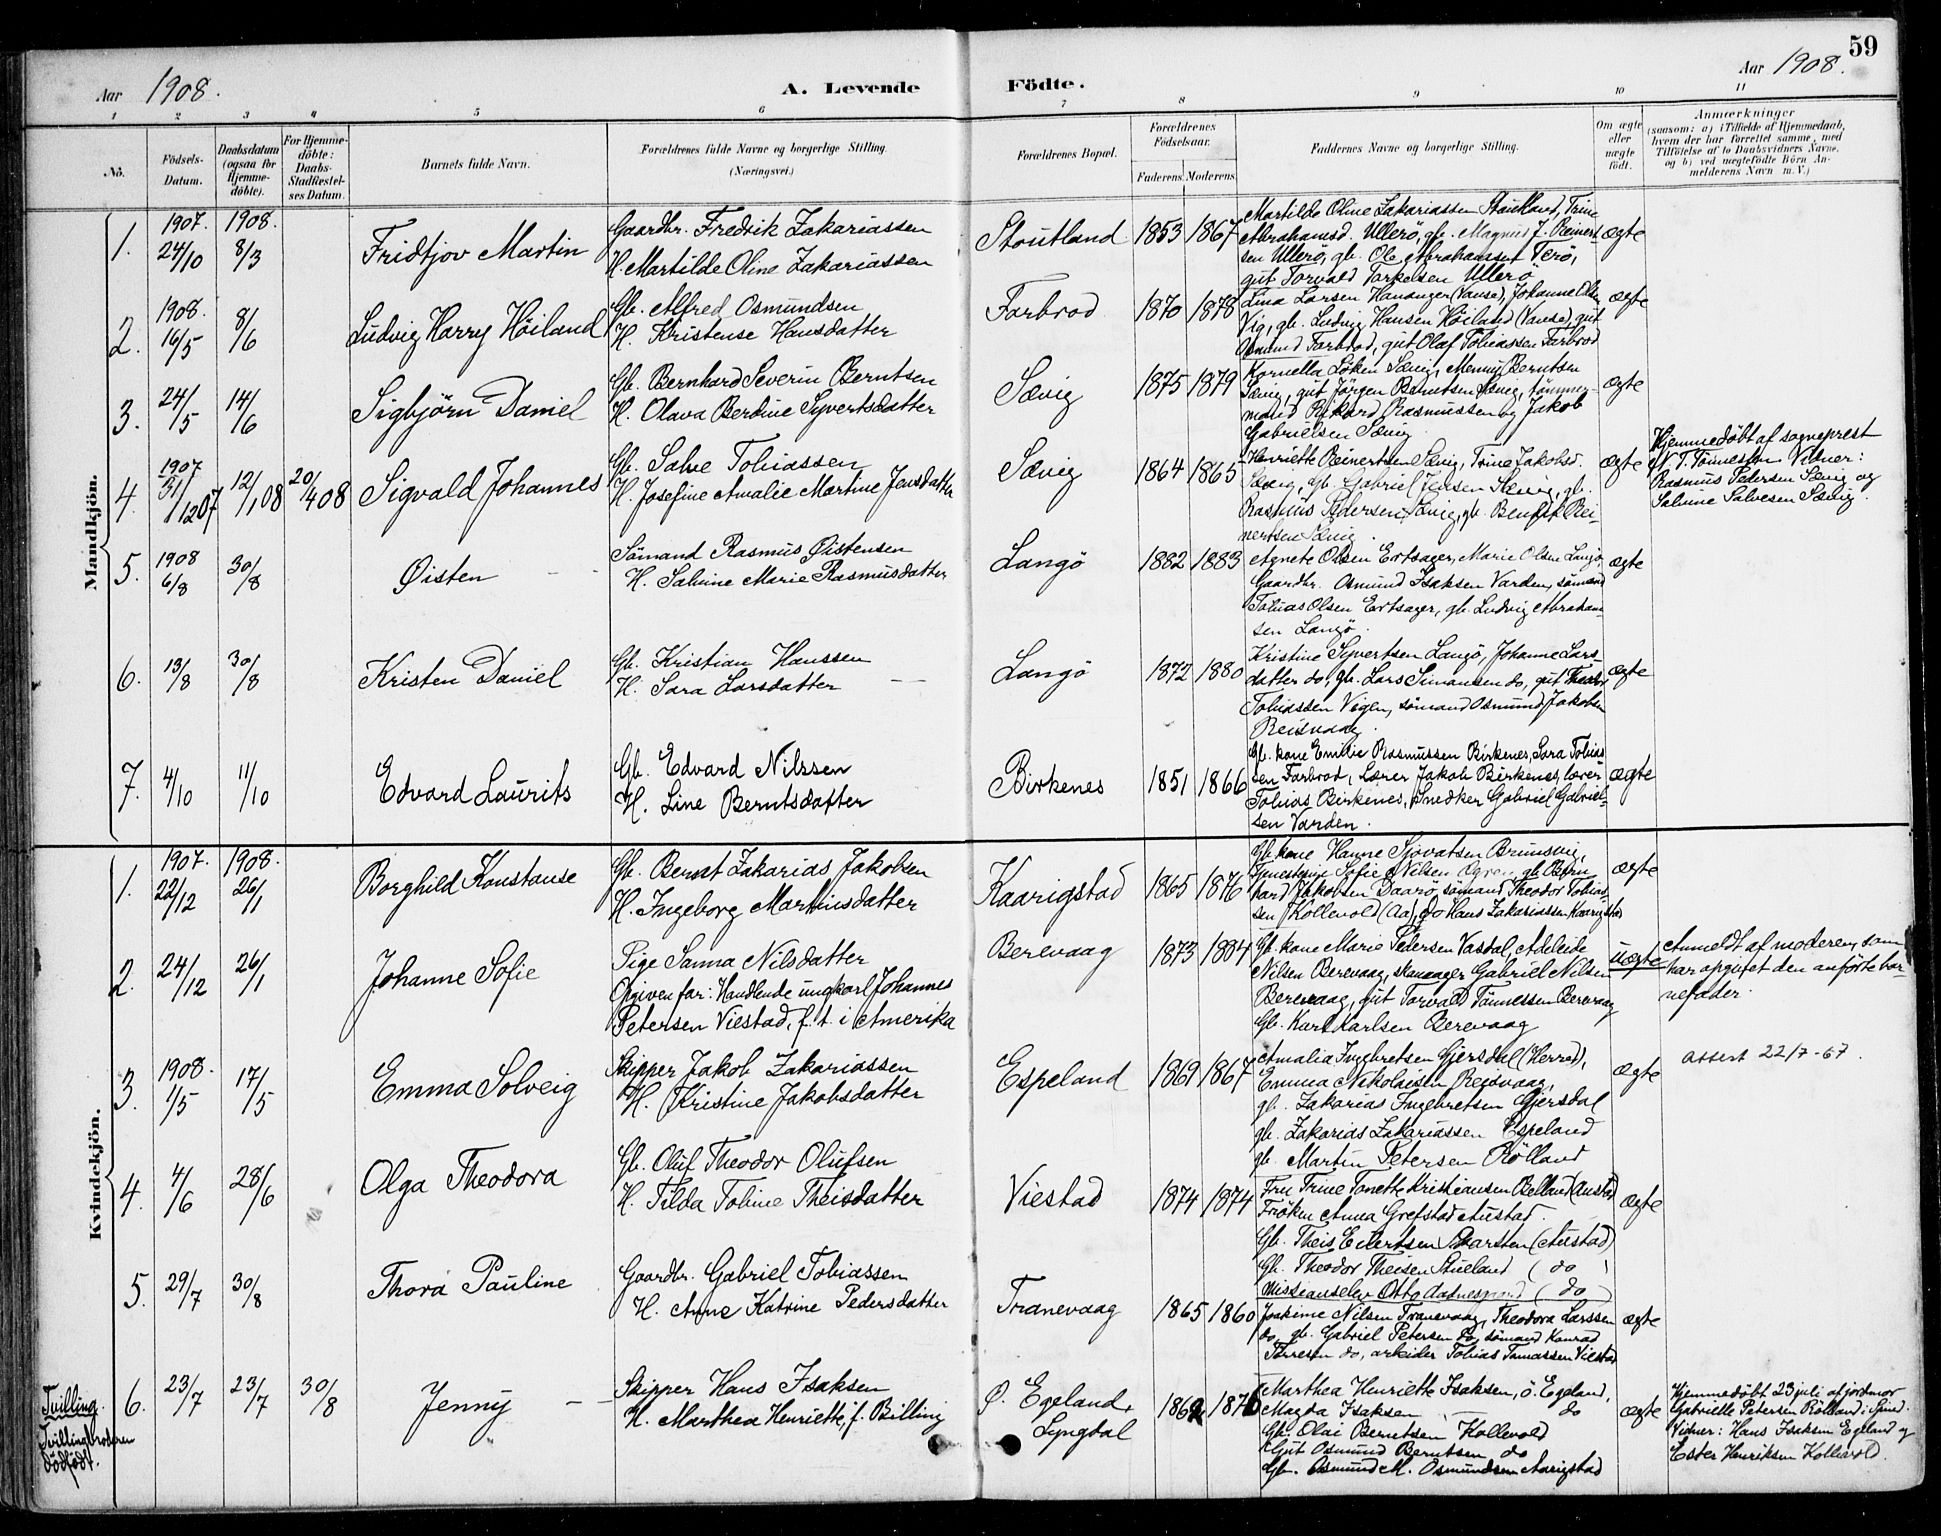 59
Aar 1908. A. Levende Födte. Aar 1908.
1 2 3 4 5 6 7 8 9 10 11
No.
Födsels-
Datum.
Daabsdatum
(ogsaa for
Hjemme-
döbte).
For Hjemme-
döbte:
Daabs-
Stadfæstel-
ses Datum.
Barnets fulde Navn.
Forældrenes fulde Navne og borgerlige Stilling.
(Næringsvei.)
Forældrenes Bopæl.
Forældrenes
Födselsaar.
Faderens. Moderens.
Faddernes Navne og borgerlige Stilling.
Om ægte
eller
uægte
født.
Anmærkninger
(saasom: a) i Tilfælde af Hjemmedaab,
hvem der har forrettet samme, med
Tilføielse af to Daabsvidners Navne,
og b) ved uægtefödte Börn An-
melderens Navn m. V.)
Mandkjön.
1. 1907. 24/10 1908. 8/3 Fridtjov Martin
Gaardbr. Fredrik Zakariassen
H. Martilde Oline Zakariassen
Stoutland 1853 1867
Martilde Oline Zakariassen Stoutland, Trine
Abrahamsd. Ullerö, gb. Magnus f. Reinert-
sen Ullerö, gb. Ole Abrahamsen Terö,
gut Torvald Torkelsen Ullerö
ægte
2. 1908. 16/5 8/6 Ludvig Harry Höiland
Gb. Alfred Osmundsen
H. Kristense Hansdatter
Farbrod 1870 1878
Lina Larsen Hananger (Vanse), Johanne Olsen
Vig, gb. Ludvig Hansen Höiland (Vanse), gut
Osmund Farbrod, gut Olaf Tobiassen Farbrod
ægte
3. 24/5 14/6 Sigbjörn Daniel
Gb. Bernhard Severin Berntsen
H. Olava Berdine Syvertsdatter
Sævig 1875 1879
Kornelia Löken Sævig, Menny Berntsen
Sævig, gut Jörgen Berntsen Sævig, tömmer-
mand Rikard Rasmussen og Jakob
Gabrielsen Sævig
ægte
4. 1907 31/12 07 12/1 08 20/4 08 Sigvald Johannes
Gb. Salve Tobiassen
H. Josefine Amalie Martine Jensdatter
Sævig 1864 1865
Henriette Reinertsen Sævig, Trine Jakobsd.
Sævig, gb. Gabriel Jensen Sævig, gb.
Rasmus Pedersen Sævig, gb. Bendik Rei-
nertsen Sævig.
ægte
Hjemmedöbt af sogneprest
N. T. Tönnessen Vidner:
Rasmus Pedersen Sævig og
Salmine Salvesen Sævig.
5. 1908 6/8 30/8 Øisten
Sömand Rasmus Øistensen
H. Salmine Marie Rasmusdatter
Langö 1882 1883
Agnete Olsen Ertsager, Marie Olsen Langö,
Gaardbr. Osmund Isaksen Varden, sömand
Tobias Olsen Ertsager, gb. Ludvig Abraham-
sen Langö.
ægte
6. 13/8 30/8 Kristen Daniel
Gb. Kristian Hanssen
H. Sara Larsdatter
Langö 1872 1880
Kristine Syvertsen Langö, Johanne Lars-
datter do, gb. Lars Simonsen do, gut Theodor
Tobiassen Vigen, sömand Osmund Jakobsen
Reisvaag.
ægte
7. 4/10 11/10 Edvard Laurits
Gb. Edvard Nilssen
H. Line Berntsdatter
Birkenes 1851 1866
Gb. kone Emilie Rasmussen Birkenes, Sara Tobias-
sen Farbrod, Lærer Jakob Birkenes, lærer
Tobias Birkenes, Snedker Gabriel Gabriel-
sen Varden.
ægte
Kvindekjön.
1. 1907. 22/12 1908. 26/1 Borghild Konstanse
Gb. Bernt Zakarias Jakobsen
H. Ingeborg Martinsdatter
Kaarigstad 1865 1876
Gb. kone Hanne Sjovatsen Brunsvig,
Tjenestepige Sofie Nilsen Ogren, gb. Bern-
hard Jakobsen Daarö, sömand Theodor Tobias-
sen Kollevold (Aa), do Hans Zakariassen Kaarigstad
ægte
2. 24/12 26/1 Johanne Sofie
Pige Sanna Nilsdatter
Opgiven far: Handlende ungkarl Johannes
Petersen Viestad, f. t. i Amerika
Berevaag 1873 1884
Gb. kone Marie Pedersen Vasdal, Adeleide
Nilsen Berevaag, skomager Gabriel Nilsen
Berevaag, gut Torvald Tönnessen Berevaag
Gb. Karl Karlsen Berevaag
uægte
Anmeldt af moderen, som
har opgivet den anförte bar-
nefader.
3. 1908. 1/5 17/5 Emma Solveig
Skipper Jakob Zakariassen
H. Kristine Jakobsdatter
Espeland 1869 1867
Amalia Ingebretsen Gjersdal (Herred),
Emma Nikolaisen Reisvaag,
gb. Zakarias Ingebretsen Gjersdal
gb. Zakarias Zakariassen Espeland
gb. Martin Petersen Rölland
ægte
Attest 22/7-67.
4. 4/6 28/6 Olga Theodora
Gb. Oluf Theodor Olufsen
H. Tilda Tobine Theisdatter
Viestad 1874 1874
Fru Trine Tonette Kristiansen Belland (Austad)
Fröken Anna Grefstad Austad.
Gb. Theis Eilertsen Skarsten (Austad)
Gb. Theodor Theisen Stueland (do)
Missionselev Otto Aadnesgaard (do)
ægte
5. 29/7 30/8 Thora Pauline
Gaardbr. Gabriel Tobiassen
H. Anne Katrine Pedersdatter
Tranevaag 1865 1860
Joakime Nilsen Tranevaag, Theodora Larssen
do, gb. Gabriel Petersen do, sömand Konrad
Torresen do, arbeider Tobias Tomassen Viestad
ægte
Tvilling.
Tvillingbroderen
dödfödt.
6. 23/7 23/7 30/8 Jenny
Skipper Hans Isaksen
H. Marthea Henriette, f. Billing
Ø. Egeland,
Lyngdal
1862 1876
Marthea Henriette Isaksen, ö. Egeland,
Magda Isaksen do
Gb. Olai Berntsen Kollevold
Gut Osmund Berntsen do
Gb. Osmund M. Osmundsen Aarigstad
ægte
Hjemmedöbt 23 juli af jordmor
Gabrielle Petersen Rölland i Spind.
Vidner: Hans Isaksen Egeland og
Ester Henriksen Kollevold.